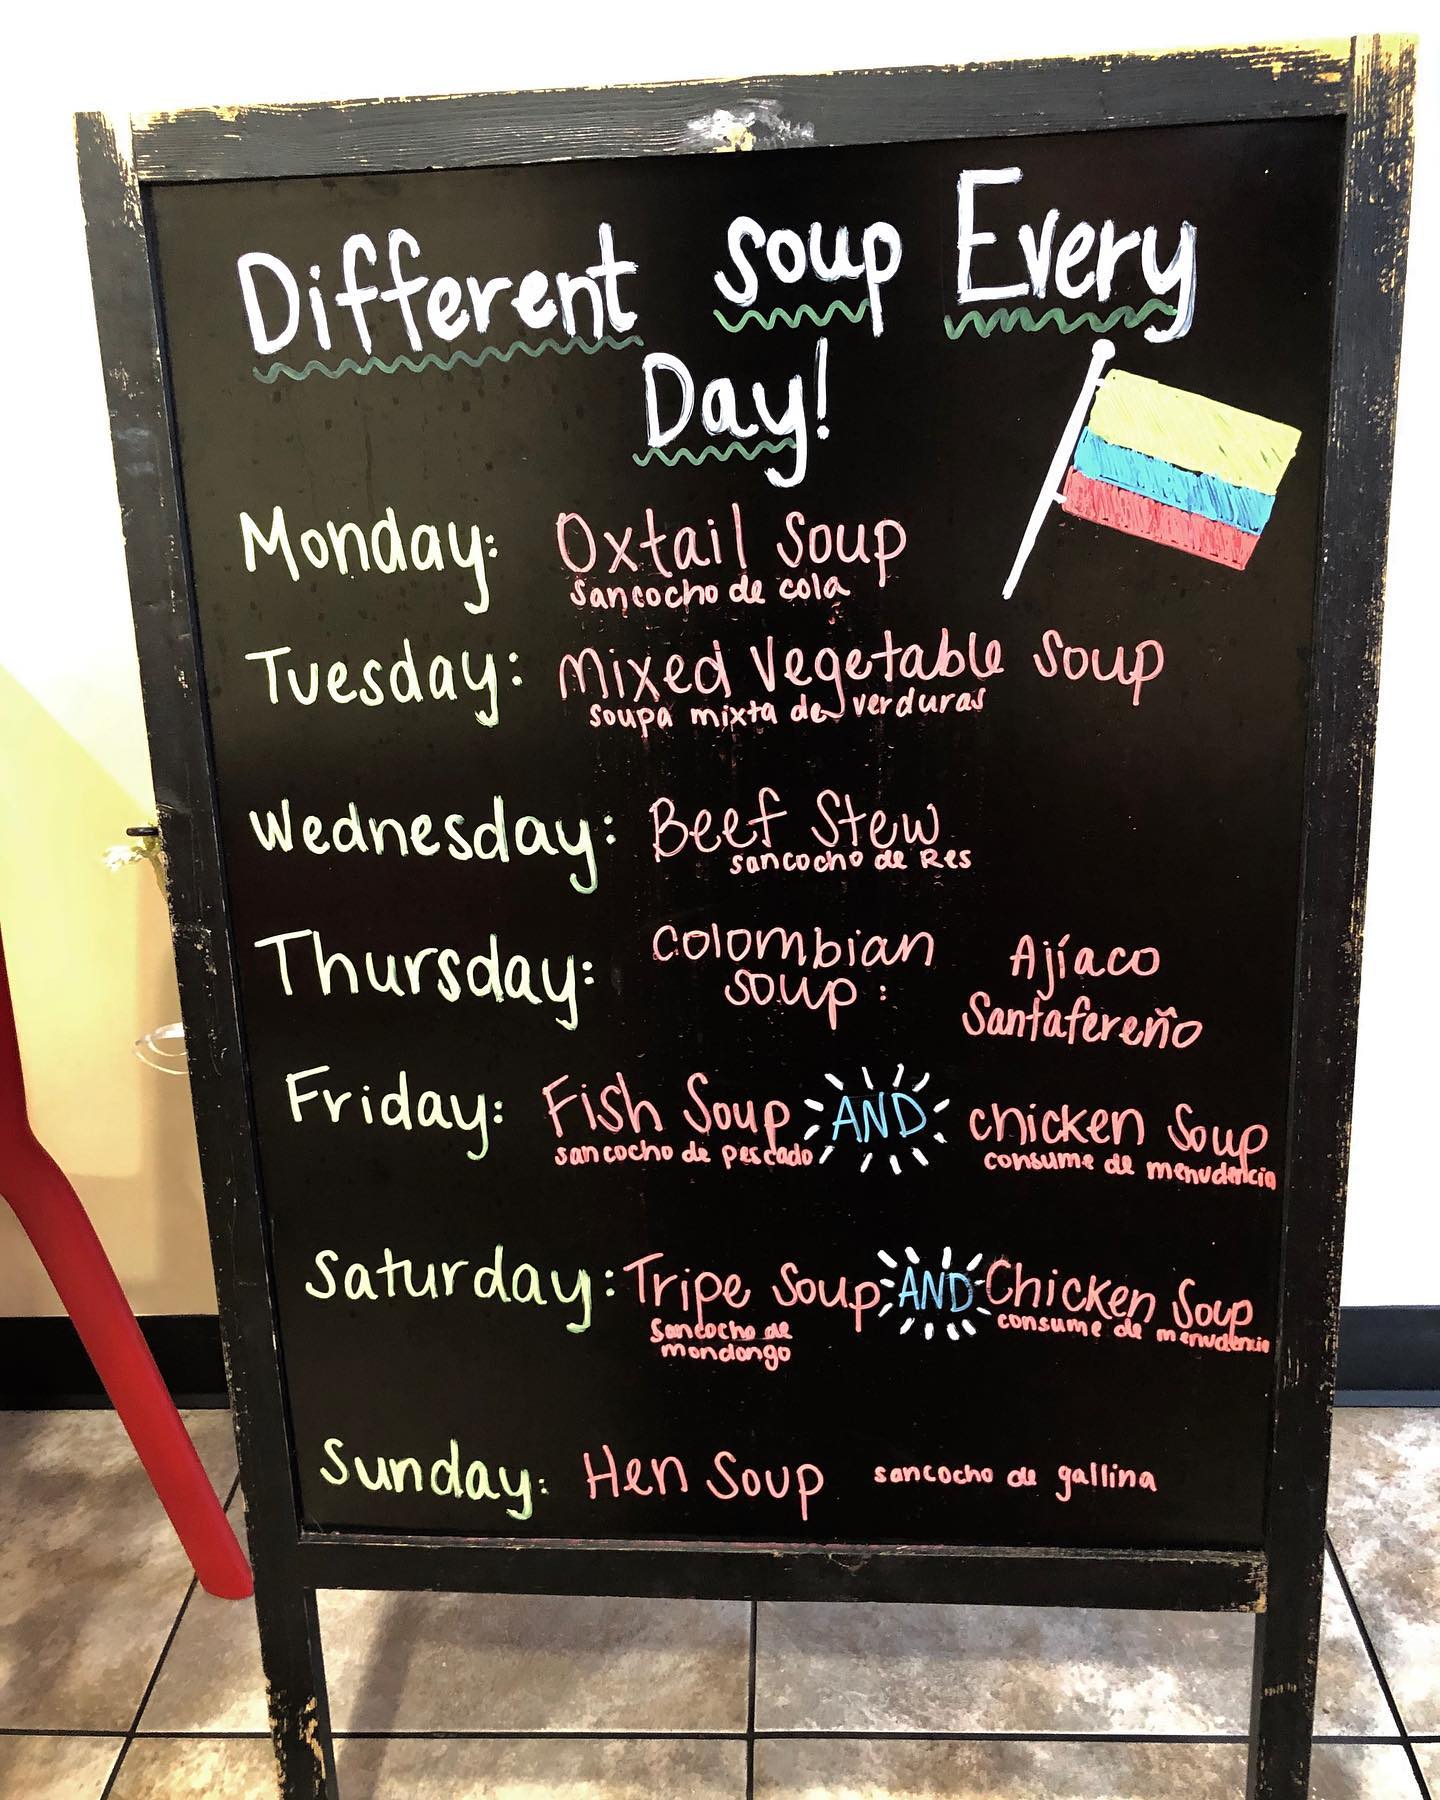 Different Soup Every
Day!
Monday: Oxtail Soup
sancocho de cola
Tuesday: Mixed Vegetable Soup
soupa mixta de verduras
Wednesday: Beef Stew
sancocho de Res
Thursday: Colombian Soup: Ajíaco Santafereño
Friday: Fish Soup AND chicken Soup
sancocho de pescado consume de menudencia
Saturday: Tripe Soup AND Chicken Soup
Sancocho de mondongo consume de menudencia
Sunday: Hen Soup sancocho de gallina